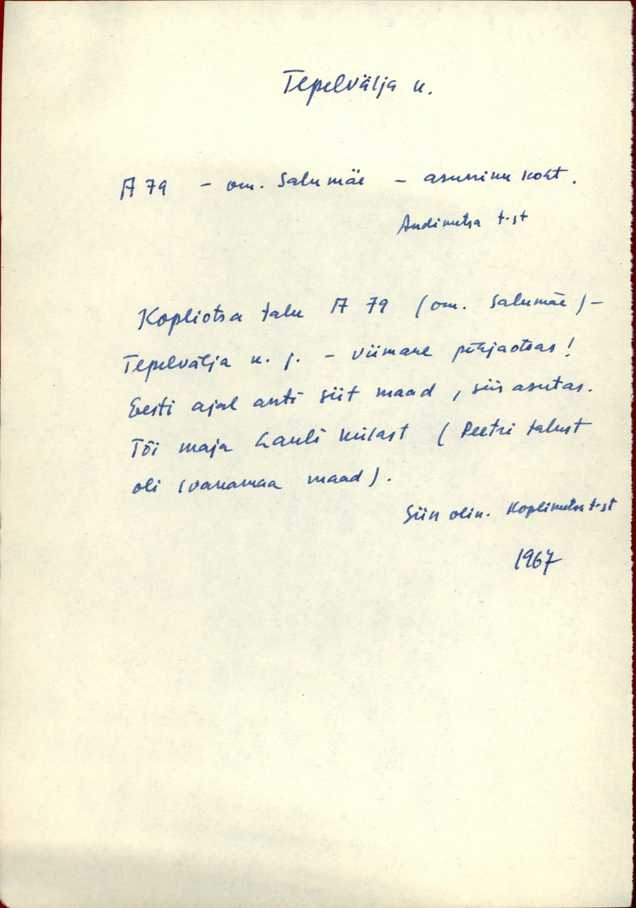 Tepelvälja k.
A 79 – om. Salumäe – asunniku koht.
Andimetsa t-st
Kopliotsa talu A 79 (om. Salumäe) –
Tepelvälja k. j. – viimane põhjaotsas!
Eesti ajal anti siit maad, siis asutas.
Tõi maja Lauli külast (Peetri talust
oli (vanamaa maad).
Siin olin. Koplimetsa t-st
1967